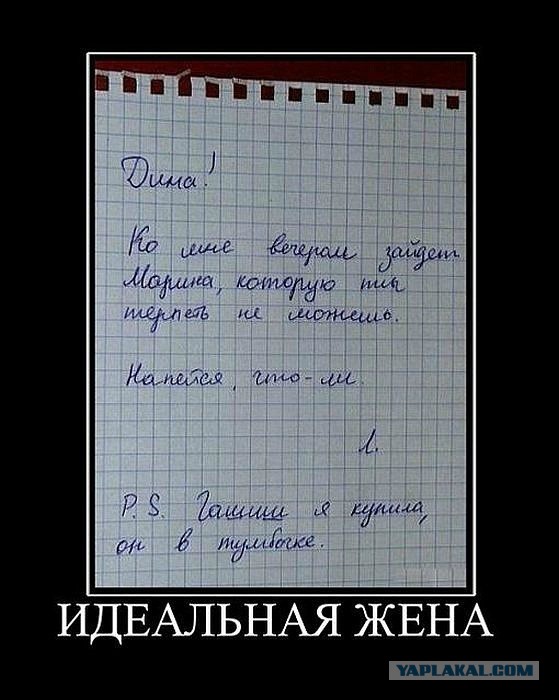 Дима!
Ко мне вечером зайдет
Марина, которую ты
терпеть не можешь.
Напейся, что-ли.
Л.
P.S. Гашиш я купила,
он в тумбочке.
ИДЕАЛЬНАЯ ЖЕНА
YAPLAKAL.COM